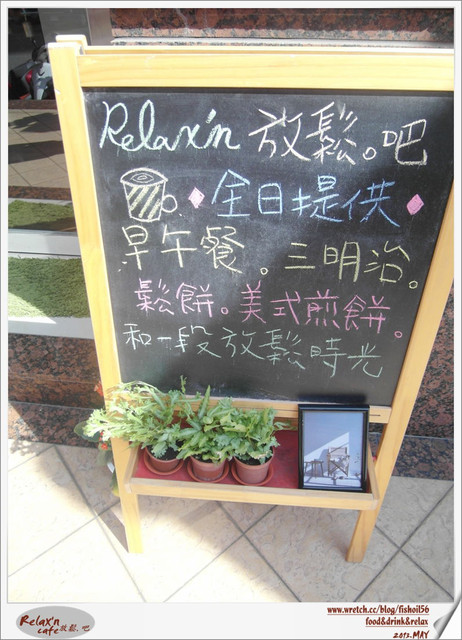 Relax'n 放鬆。吧
全日提供
早午餐。三明治。
鬆餅。美式煎餅。
和一段放鬆時光
Relax'n
cafe放鬆.吧
www.wretch.cc/blog/fishoil56
food&drink&relax
2012.MAY